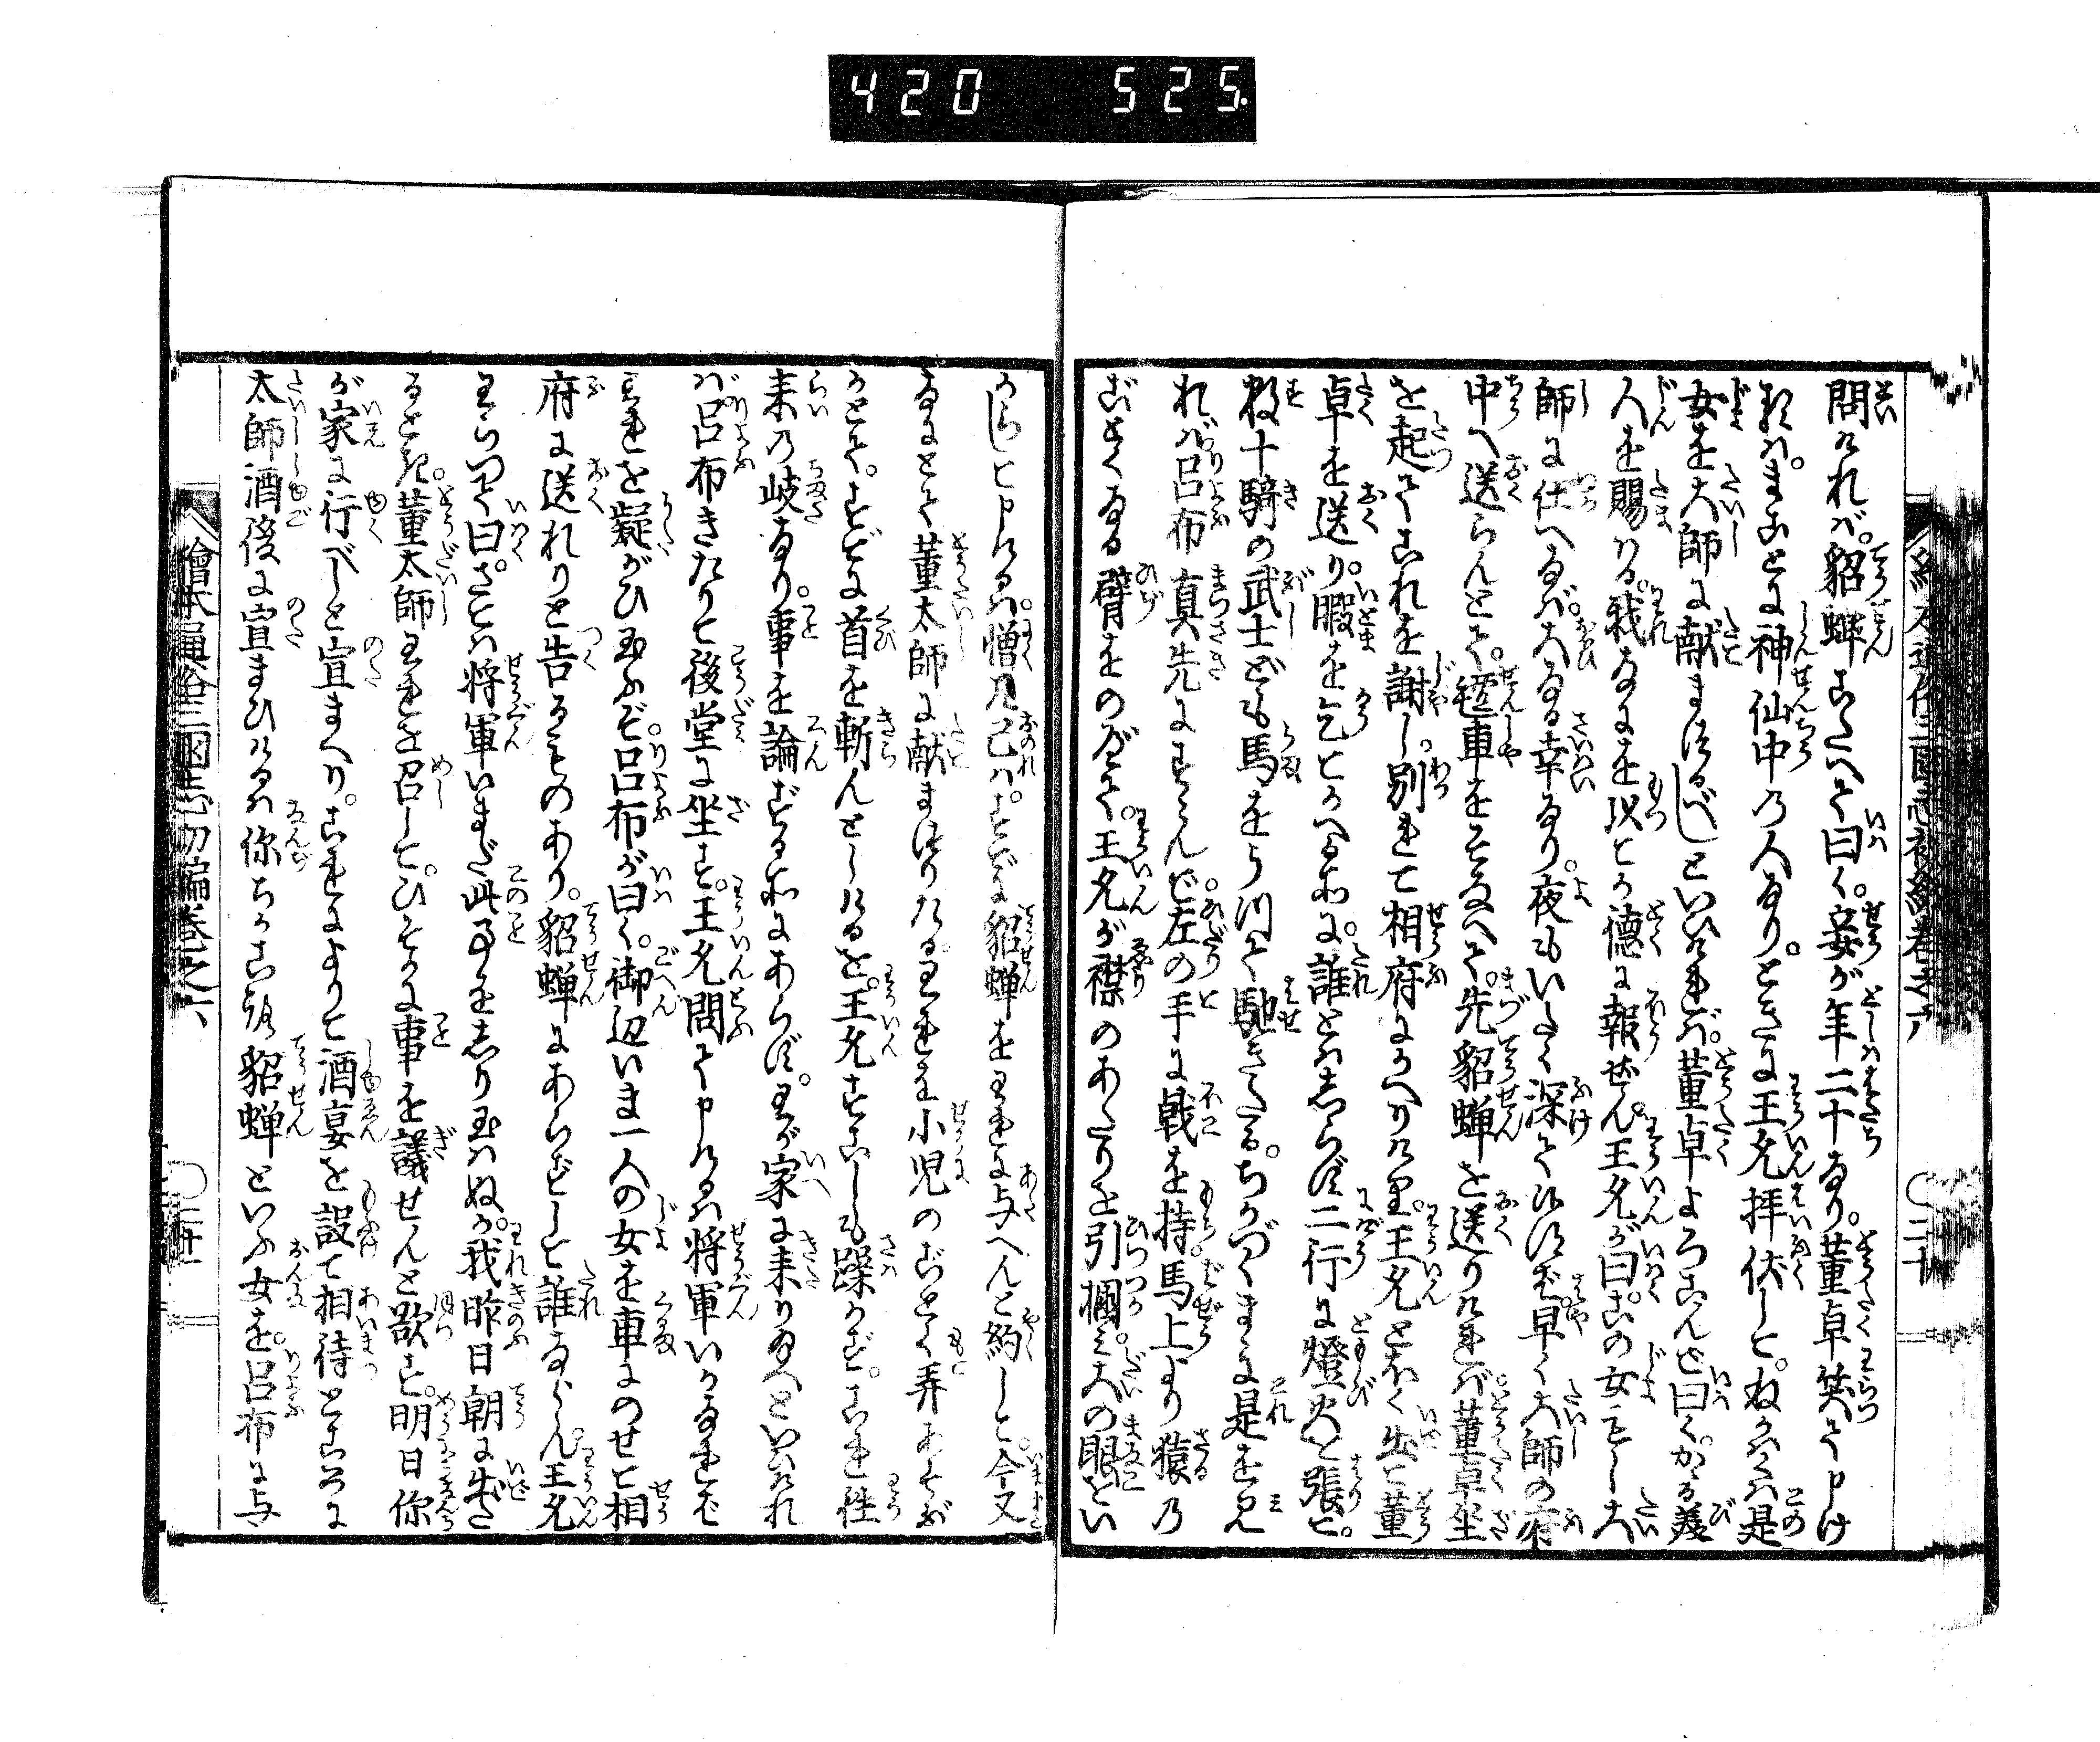 420 525
絵本通俗三國志初編巻之六 〇二十
問けれバ。貂蝉こたへて曰く。妾が年二十なり。董卓笑て申け
るハ。まことに神仙中の人なり。ときに王允拝伏して。ねがハくハ是
女を太師に献まつるべしといひけれバ。董卓よろこんで曰く。かゝる美
人を賜ハる。我なにを以てか徳に報ぜん。王允が曰。この女もし太
師に仕へなバ。大なる幸なり。夜もいたく深て候ほどに早く太師の府
中へ送らんとて。氈車をそなへて。先貂蝉を送りけれバ。董卓坐
を起てこれを謝し。別れて相府にかへりける。王允とおく出て董
卓を送り。暇を乞てかへる所に。誰とハしらず二行に燈火を張て。
数十騎の武士ども馬をうつて馳きたる。ちかづくまゝに是を見
れバ。呂布真先にすゝんで。左の手に戟を持。馬上より猿の
ごとくなる臂をのべて。王允が襟のあたりを引掴ミ。大の眼をい
からして申けるハ。憎凡己ハ。すでに貂蝉をわれに与へんと約して。今又
なにとて董太師に献まつりたる。われを小児のごとく弄あそぶ
かとて。すでに首を斬んとしけるを。王允すこしも躁かず。これ往
来の岐なり。事を論ずる所にあらず。わが家に来り玉へといひけれ
バ。呂布きたりて後堂に坐す。王允問て申けるハ。将軍いかなれば
われを疑がひ玉ふぞ。呂布が曰く。御辺いま一人の女を車にのせて相
府に送れりと告るものあり。貂蝉にあらずして誰ならん。王允
わらつて曰。さてハ将軍いまだ此事をしり玉ハぬか。我昨日朝に出た
るとき。董太師われを召して。ひそかに事を議せんと欲す。明日你
が家に行べしと宣まへり。これによりて酒宴を設て相待ところに
太師酒後に宣まひけるハ。你ちかごろ貂蝉といふ女を。呂布に与
繪本通俗三國志初編巻之六 〇二十一